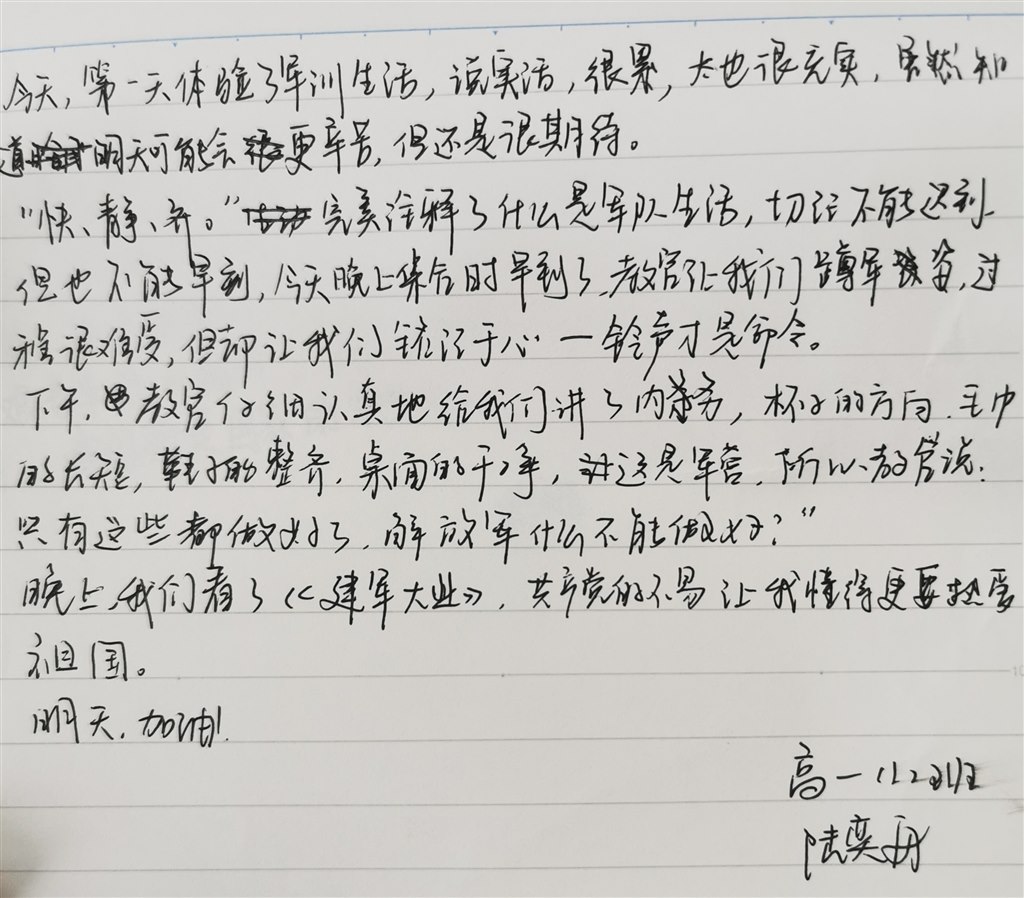 今天，第一天体验了军训生活，说实话，很累，太也很充实，虽然知
道明天可能会更辛苦，但还是很期待。
“快、静、齐。”完美诠释了什么是军队生活，切记不能迟到
但也不能早到，今天晚上集合时早到了，教官让我们蹲军姿，过
程很难受，但却让我们铭记于心一铃声才是命令。
下午，教官仔细认真地给我们讲了内务，杯子的方向，毛巾
的长短，鞋子的整齐，桌面的干净，这是军营，所以教官说：
只有这些都做好了，解放军什么不能做好？”
晚上，我们看了《建军大业》，共产党的不易让我懂得更要热爱
祖国。
明天，加油！
高一（12）班
陆奕丹